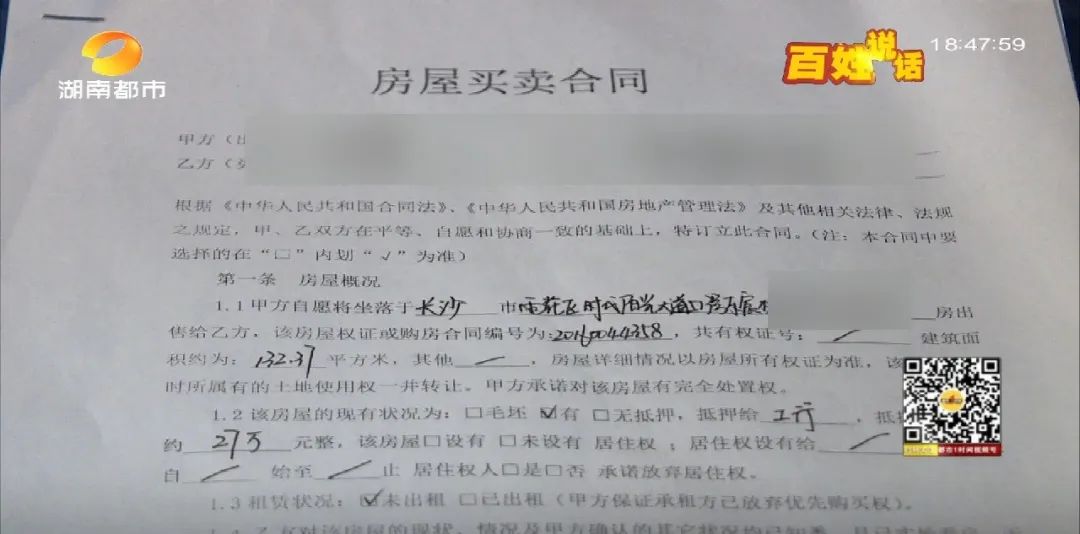 湖南都市
百姓说话
18:47:59
房屋买卖合同
甲方（出
乙方（
根据《中华人民共和国合同法》、《中华人民共和国房地产管理法》及其他相关法律、法规
之规定，甲、乙双方在平等、自愿和协商一致的基础上，特订立此合同。（注：本合同中要
选择的在“□”内划“√”为准）
第一条 房屋概况
1.1 甲方自愿将坐落于 长沙 市 雨花区时代阳光大道 房出
售给乙方，该房屋权证或购房合同编号为: ，共有权证号： 建筑面
积约为：132.37 平方米，其他 ，房屋详细情况以房屋所有权证为准，该
时所属有的土地使用权一并转让。甲方承诺对该房屋有完全处置权。
1.2 该房屋的现有状况为：□毛坯 ☑有 □无抵押，抵押给 工行 ，抵
约 27万 元整，该房屋□设有 □未设有 居住权 ；居住权设有给
自 始至 止 居住权人□是□否 承诺放弃居住权。
都市1时间视频号
1.3 租赁状况：☑未出租 □已出租（甲方保证承租方已放弃优先购买权）。